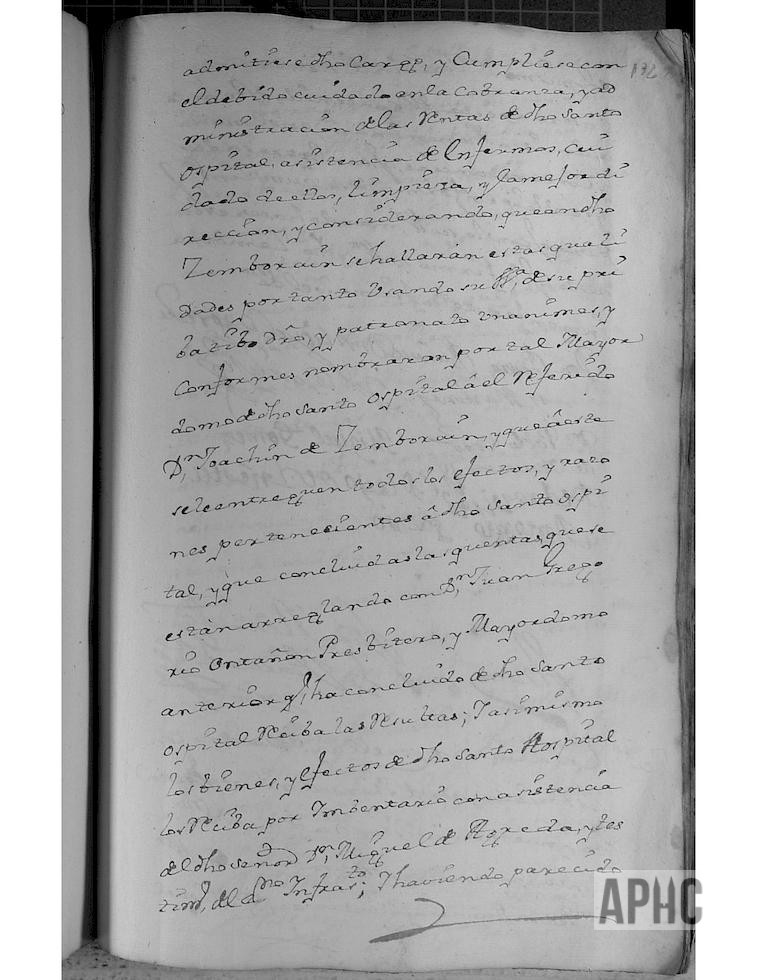 admitiese dho Cargo, y Cumpliese con
132
el debido cuidado en la Cobranza, y ad
ministracion de las Rentas de dho Santo
ospital, asistencia de Enfermos, Cui
dado de ellos, limpieza, y Lamejor di
reccion, y considerando, que en dho
Zemborain se hallarán estas quali
dades por tanto Usando su de su pri
batibo dro, y patronato Unanimes, y
Conformes nombraron por tal Mayor
domo de dho Santo Ospital â el Referido
Dn, Joachin de Zemborain, y que â este
sele entreguen todos los efectos, y razo
nes pertenesientes â dho Santo Ospi
tal, y que concluidas las quentas que se
están arreglando con Dn, Juan Grego
rio Ontañon Presbitero, y Mayordomo
anterior q, ha concluido de dho Santo
ospital Reciba las Resultas; Iasimismo
los bienes, y efectos de dho Santo Hospital
los Reciba por Imbentario con asistencia
del dho señor Dn, Miguel de Agreda, y tes
tim, del Infrasto; Ihaviendo parecido
APHC